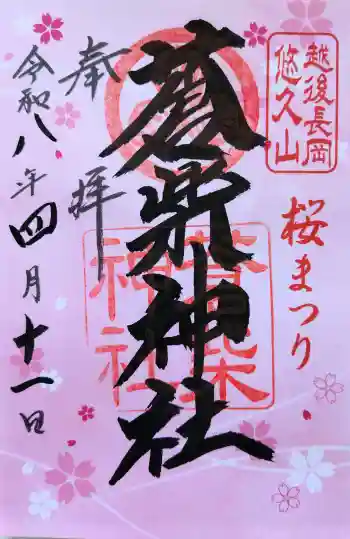 越後長岡
悠久山
桜まつり
奉拝
蒼柴神社
蒼柴神社
令和八年四月十一日